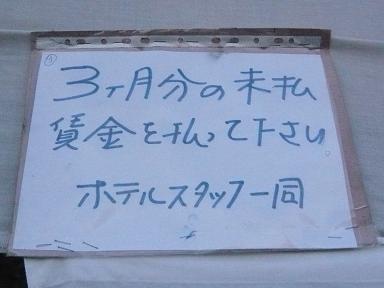 3ヶ月分の未払
賃金を払って下さい
ホテルスタッフ一同